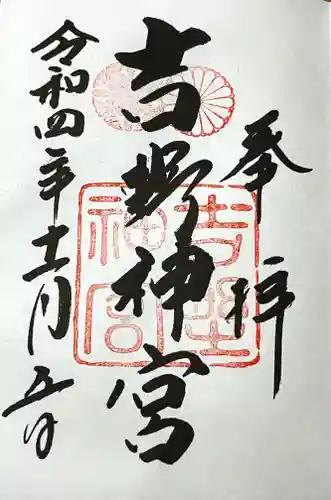 奉拝
吉野神宮
吉野神宮
令和四年十二月五日